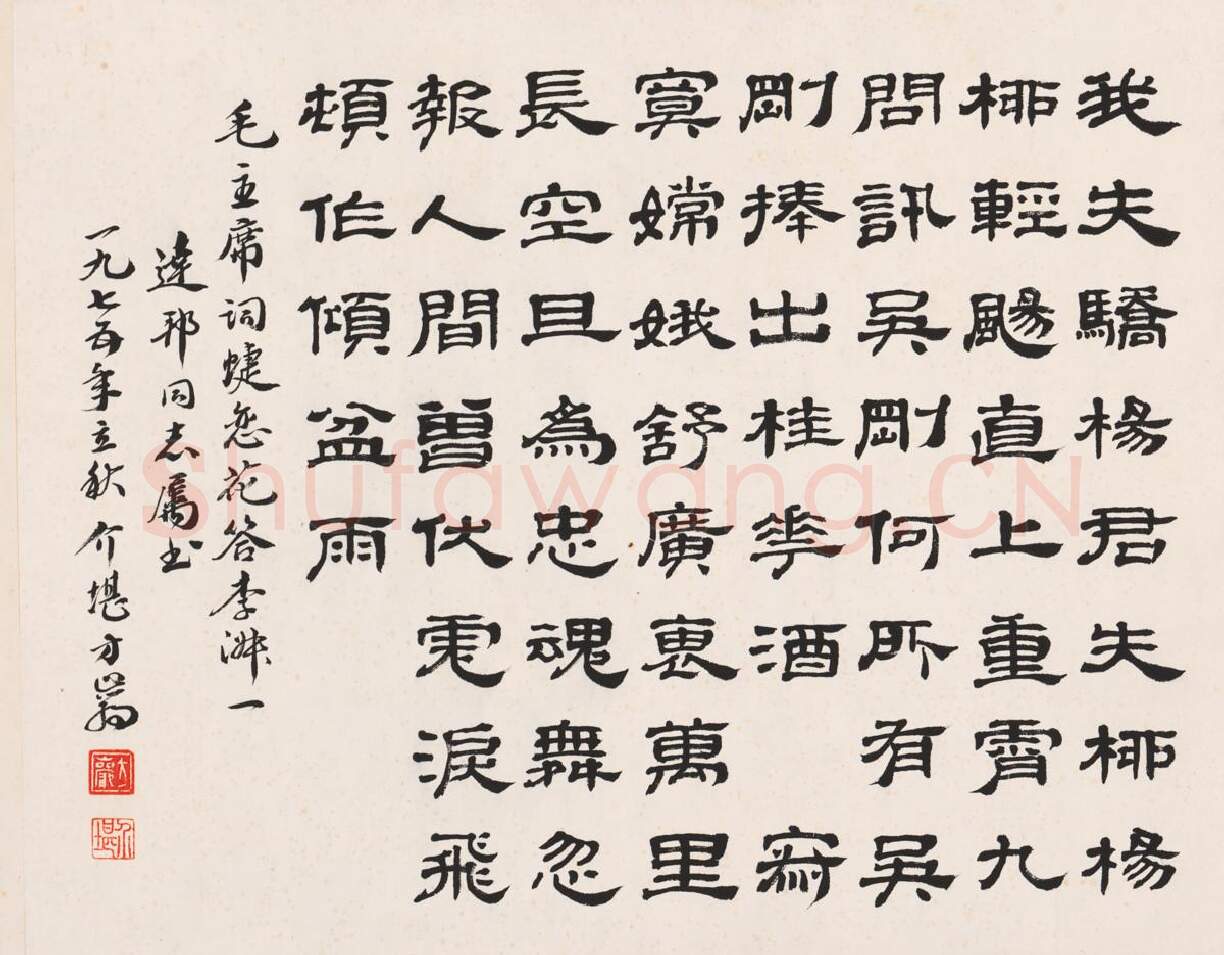 我失驕楊君失柳楊
柳輕颺直上重霄九
問訊吳剛何所有吳
剛捧出桂花酒 寂
寞嫦娥舒廣褎萬里
長空且為忠魂舞忽
報人間曾伏虎淚飛
頓作傾盆雨
毛主席詞蝶恋花答李淑一
達邦同志属书
一九七五年立秋 介堪方巖
方巖
介堪
Shufawang.CN